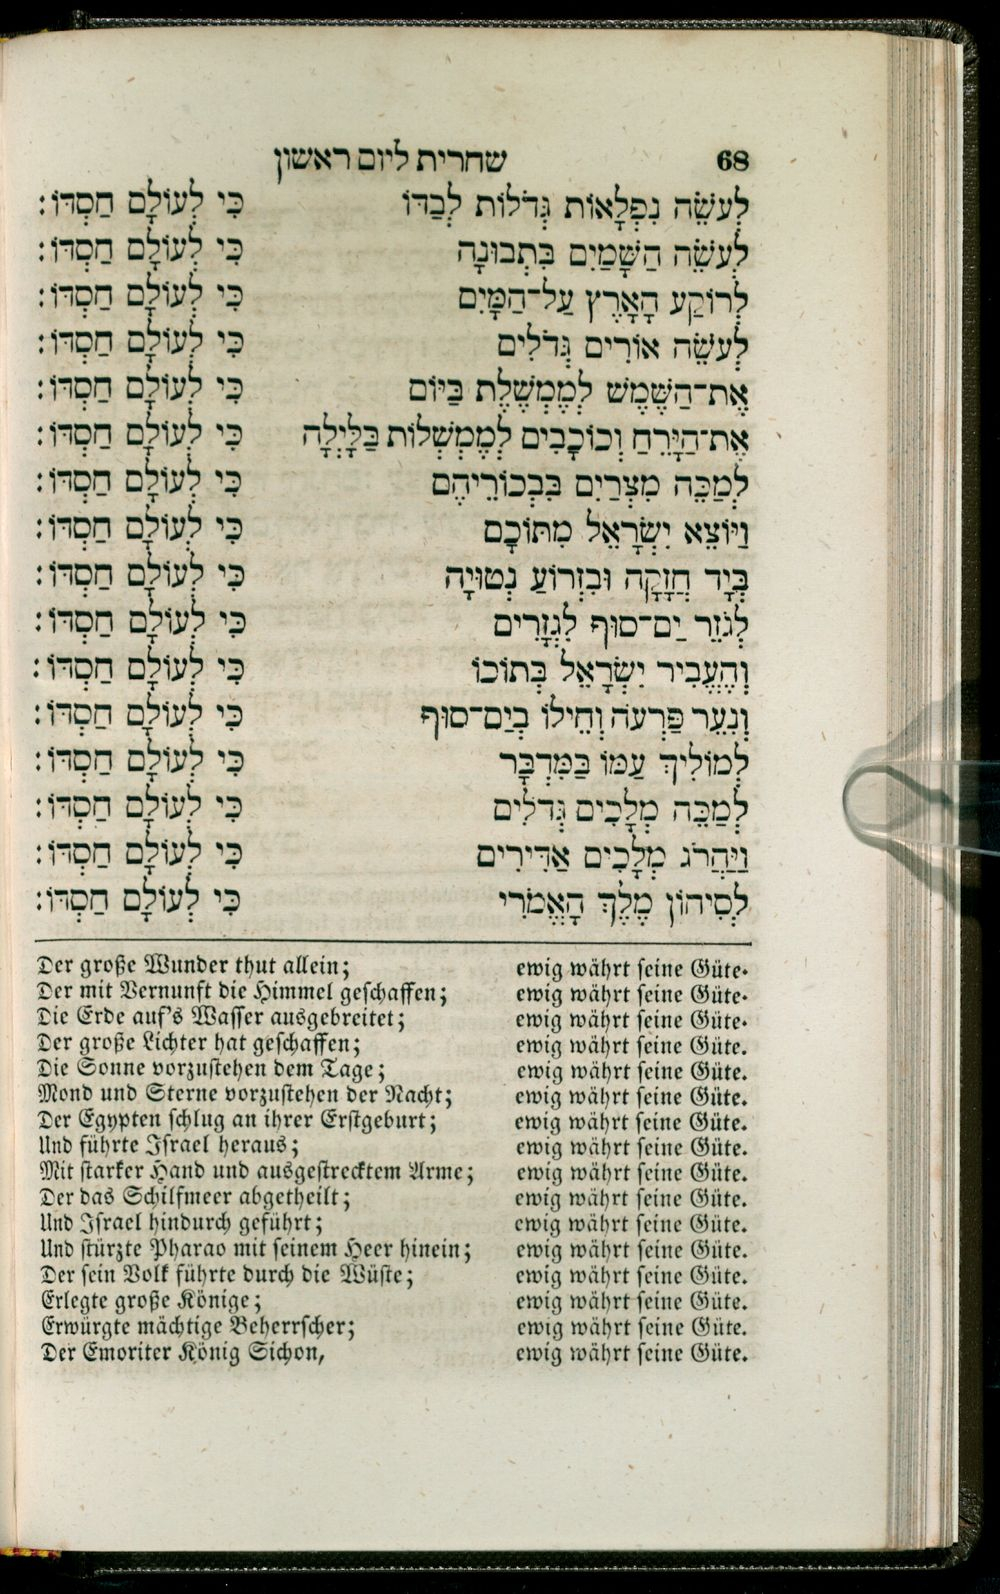 68 שחרית ליום ראשון
לְעֹשֵׂה נִפְלָאוֹת גְּדֹלוֹת לְבַדּוֹ כִּי לְעוֹלָם חַסְדּוֹ:
לְעֹשֵׂה הַשָּׁמַיִם בִּתְבוּנָה כִּי לְעוֹלָם חַסְדּוֹ:
לְרוֹקַע הָאָרֶץ עַל־הַמָּיִם כִּי לְעוֹלָם חַסְדּוֹ:
לְעֹשֵׂה אוֹרִים גְּדֹלִים כִּי לְעוֹלָם חַסְדּוֹ:
אֶת־הַשֶּׁמֶשׁ לְמֶמְשֶׁלֶת בַּיּוֹם כִּי לְעוֹלָם חַסְדּוֹ:
אֶת־הַיָּרֵחַ וְכוֹכָבִים לְמֶמְשְׁלוֹת בַּלָּיְלָה כִּי לְעוֹלָם חַסְדּוֹ:
לְמַכֵּה מִצְרַיִם בִּבְכוֹרֵיהֶם כִּי לְעוֹלָם חַסְדּוֹ:
וַיּוֹצֵא יִשְׂרָאֵל מִתּוֹכָם כִּי לְעוֹלָם חַסְדּוֹ:
בְּיָד חֲזָקָה וּבִזְרוֹעַ נְטוּיָה כִּי לְעוֹלָם חַסְדּוֹ:
לְגֹזֵר יַם־סוּף לִגְזָרִים כִּי לְעוֹלָם חַסְדּוֹ:
וְהֶעֱבִיר יִשְׂרָאֵל בְּתוֹכוֹ כִּי לְעוֹלָם חַסְדּוֹ:
וְנִעֵר פַּרְעֹה וְחֵילוֹ בְיַם־סוּף כִּי לְעוֹלָם חַסְדּוֹ:
לְמוֹלִיךְ עַמּוֹ בַּמִּדְבָּר כִּי לְעוֹלָם חַסְדּוֹ:
לְמַכֵּה מְלָכִים גְּדֹלִים כִּי לְעוֹלָם חַסְדּוֹ:
וַיַּהֲרֹג מְלָכִים אַדִּירִים כִּי לְעוֹלָם חַסְדּוֹ:
לְסִיחוֹן מֶלֶךְ הָאֱמֹרִי כִּי לְעוֹלָם חַסְדּוֹ:
Der große Wunder thut allein; ewig währt seine Güte.
Der mit Vernunft die Himmel geschaffen; ewig währt seine Güte.
Die Erde auf's Wasser ausgebreitet; ewig währt seine Güte.
Der große Lichter hat geschaffen; ewig währt seine Güte.
Die Sonne vorzustehen dem Tage; ewig währt seine Güte.
Mond und Sterne vorzustehen der Nacht; ewig währt seine Güte.
Der Egypten schlug an ihrer Erstgeburt; ewig währt seine Güte.
Und führte Israel heraus; ewig währt seine Güte.
Mit starker Hand und ausgestrecktem Arme; ewig währt seine Güte.
Der das Schilfmeer abgetheilt; ewig währt seine Güte.
Und Israel hindurch geführt; ewig währt seine Güte.
Und stürzte Pharao mit seinem Heer hinein; ewig währt seine Güte.
Der sein Volk führte durch die Wüste; ewig währt seine Güte.
Erlegte große Könige; ewig währt seine Güte.
Erwürgte mächtige Beherrscher; ewig währt seine Güte.
Der Emoriter König Sichon, ewig währt seine Güte.